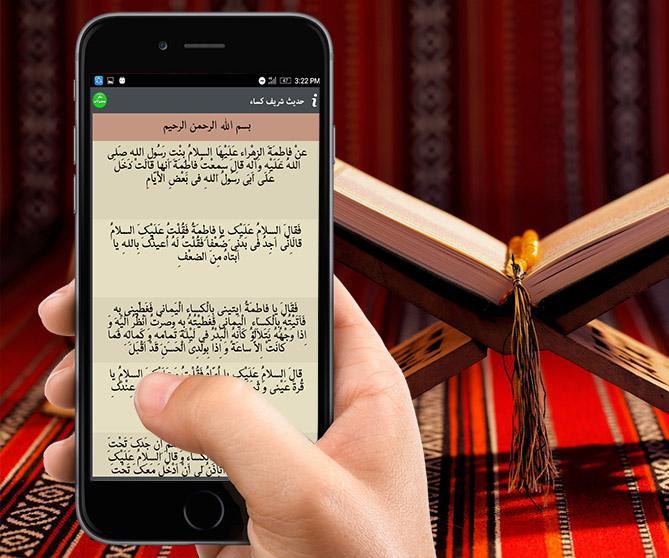 3:22 PM
حدیث شریف کساء
بسم الله الرحمن الرحیم
عَنْ فاطِمَةَ الزَّهْراءِ عَلَیْهَا السَّلامُ بِنْتِ رَسُولِ اللهِ صَلَّى
اللهُ عَلَیْهِ وَآلِهِ قالَ سَمِعْتُ فاطِمَةَ اَنَّها قالَتْ دَخَلَ
عَلَىَّ اَبى رَسُولُ اللهِ فى بَعْضِ الْأَیَّامِ
فَقالَ السَّلامُ عَلَیْكِ یا فاطِمَةُ فَقُلْتُ عَلَیْكَ السَّلامُ
قالَ اِنّى اَجِدُ فى بَدَنى ضُعْفاً فَقُلْتُ لَهُ اُعیذُكَ بِاللهِ یا
اَبَتاهُ مِنَ الضُّعْفِ
فَقالَ یا فاطِمَةُ ایتینى بِالْكِساءِ الْیَمانى فَغَطّینى بِهِ
فَاَتَیْتُهُ بِالْكِساءِ الْیَمانى فَغَطَّیْتُهُ بِهِ وَصِرْتُ اَنْظُرُ اِلَیْهِ وَ
اِذا وَجْهُهُ یَتَلَاْلَؤُ كَاَنَّهُ الْبَدْرُ فى لَیْلَةِ تَمامِهِ وَ كَمالِهِ فَما
كانَتْ اِلاَّ ساعَةً وَ اِذا بِوَلَدِىَ الْحَسَنِ قَدْ اَقْبَلَ
قالَ السَّلامُ عَلَیْكِ یا اُمَّاهُ فَقُلْتُ السَّلامُ یا
قُرَّةَ عَیْنى وَ عِنْدَكِ
اِنَّ جَدَّكَ تَحْتَ
الْكِساءِ وَ قالَ السَّلامُ عَلَیْكَ
لى اَنْ اَدْخُلَ مَعَكَ تَحْتَ